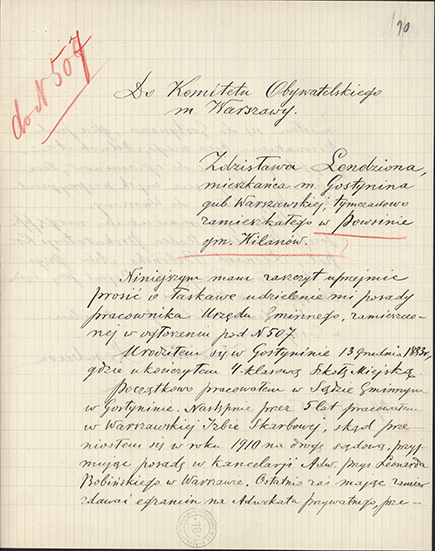 90
do N 507
Do Komitetu Obywatelskiego
m Warszawy.
Zdzisława Lendziona,
mieszkańca m. Gostynina
gub. Warszawskiej, tymczasowo
zamieszkałego w Powsinie
gm. Wilanów.
Niniejszym mam zaszczyt uprzejmie
prosić o łaskawe udzielenie mi posady
pracownika Urzędu Gminnego, zamieszczo-
nej w ogłoszeniu pod N 507
Urodziłem się w Gostyninie 13 Grudnia 1883 r,
gdzie ukończyłem 4. klasową Szkołę Miejską
Początkowo pracowałem w Sądzie Gminnym
w Gostyninie. Następnie przez 5 lat pracowałem
w Warszawskiej Izbie Skarbowej, skąd prze-
niosłem się w roku 1910 na drogę sądową, przyj-
mując posadę w kancelarji Adw. przys Leonarda
Bobińskiego w Warszawie. Ostatnio zaś mając zamiar
zdawać egzamin na Adwokata prywatnego, prze-